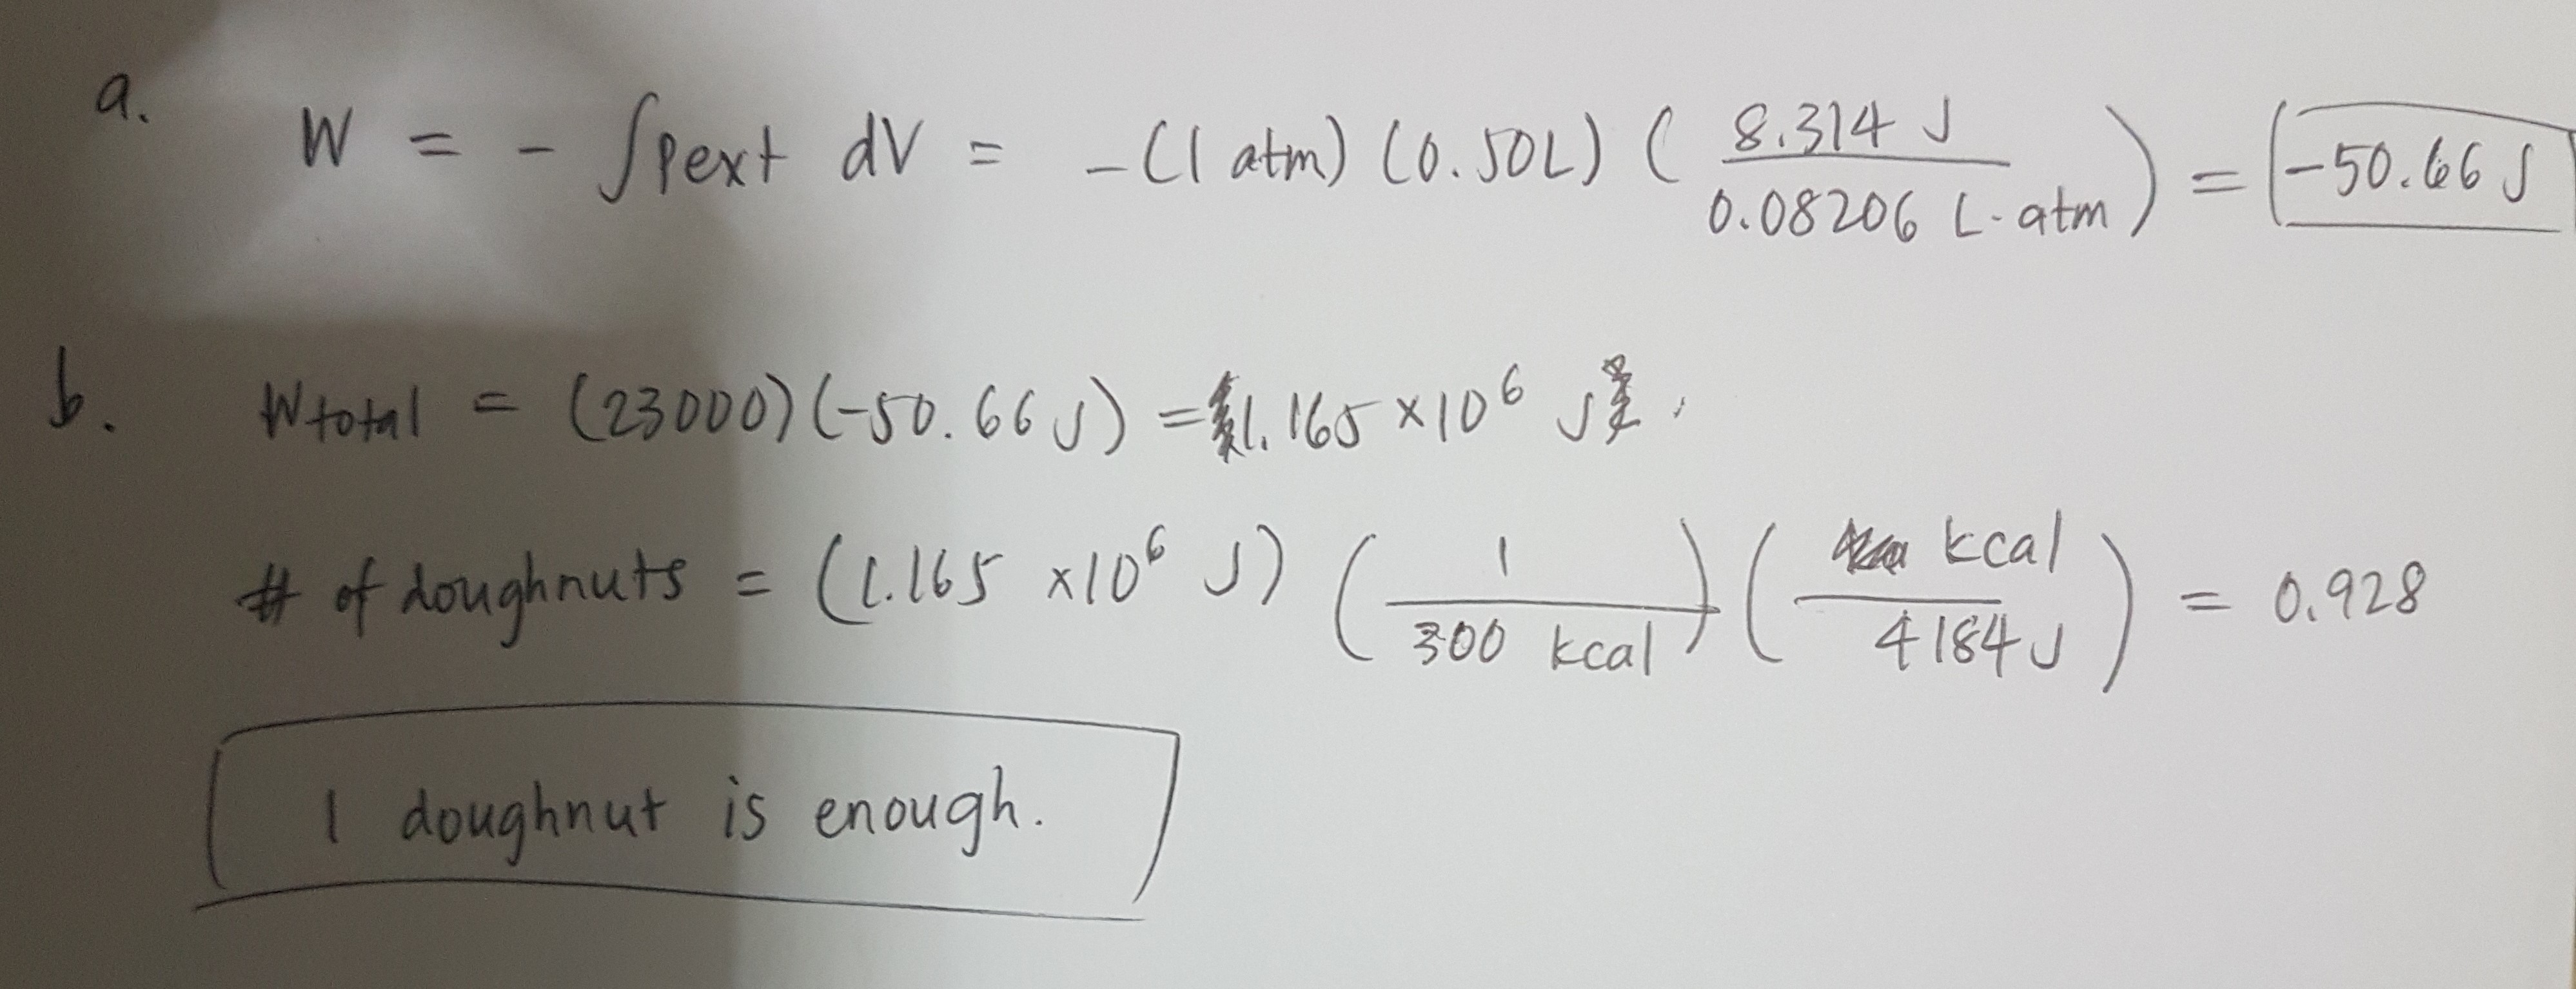 a.
W = - ∫Pext dV = -(1 atm) (0.50L) ( 8.314 J / 0.08206 L·atm ) = -50.66 J
b. Wtotal = (23000)(-50.66 J) = 1.165 ×10⁶ J
# of doughnuts = (1.165 ×10⁶ J) ( 1 / 300 kcal ) ( kcal / 4184 J ) = 0.928
1 doughnut is enough.